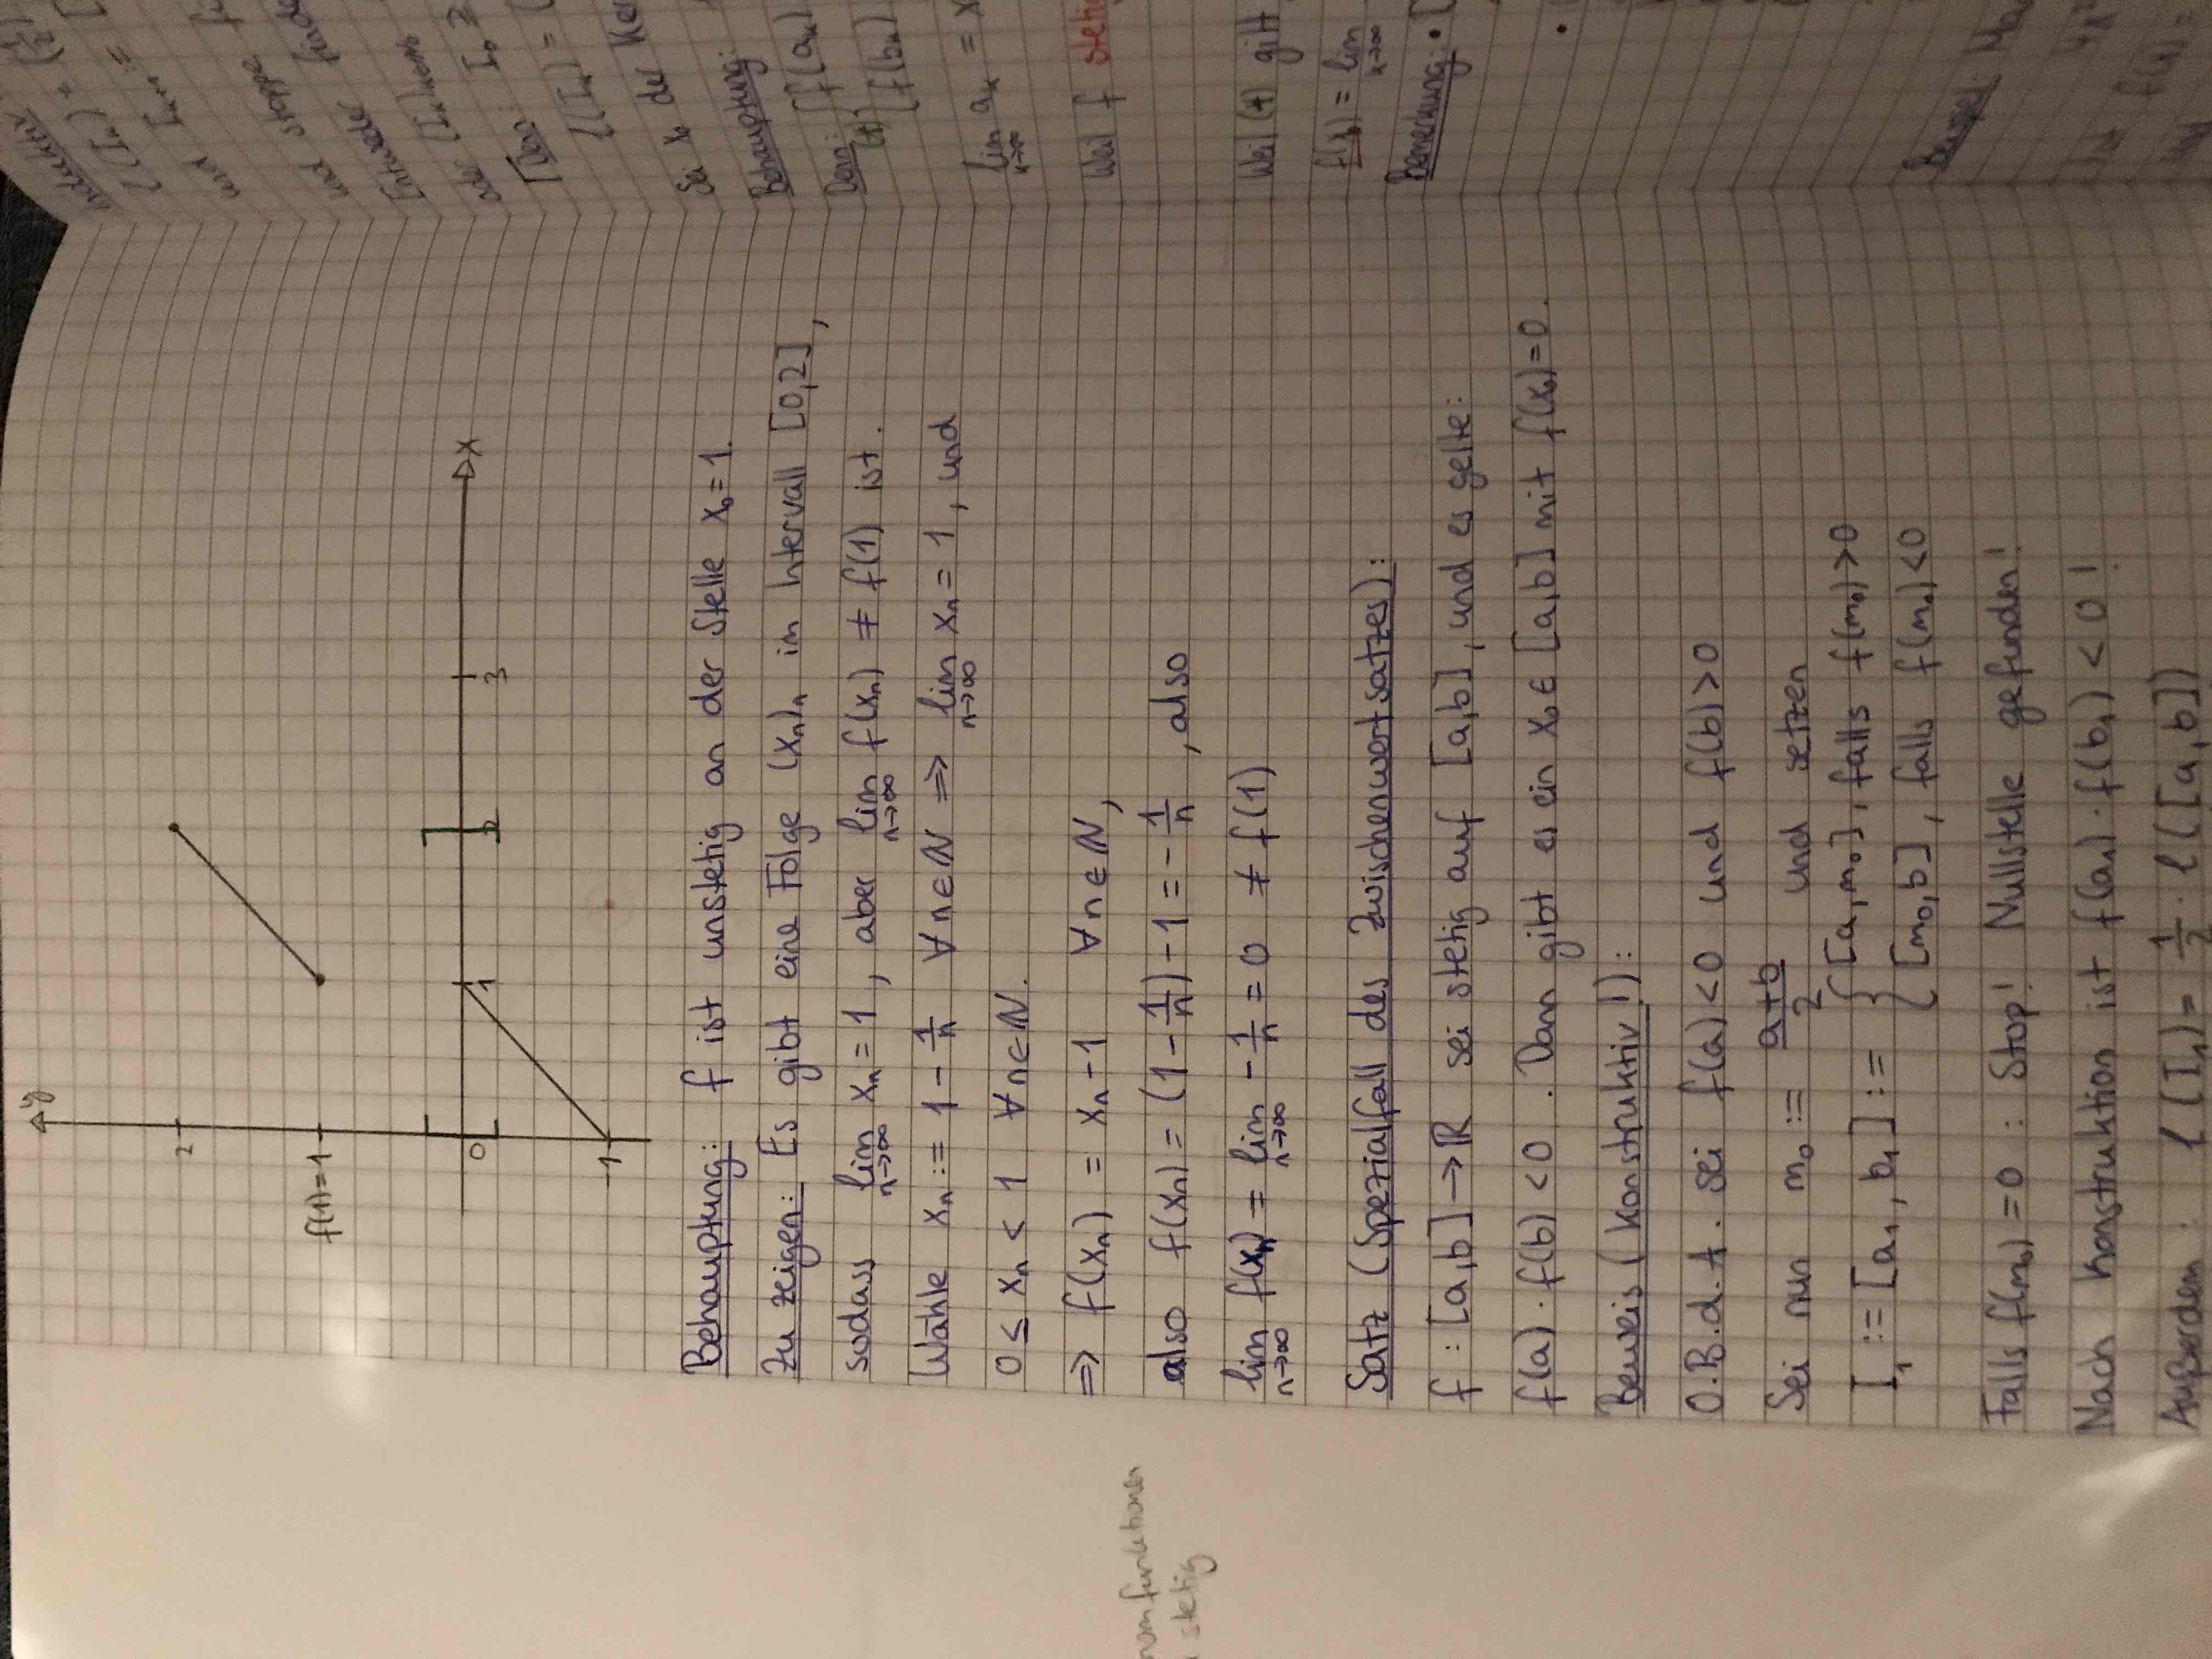 y
2
f(1)=1
0
1
2
3
x
-1
Behauptung: f ist unstetig an der Stelle x₀=1.
Zu zeigen: Es gibt eine Folge (xₙ)ₙ im Intervall [0,2],
sodass lim n→∞ xₙ=1, aber lim n→∞ f(xₙ) ≠ f(1) ist.
Wähle xₙ := 1 - 1/n ∀n∈ℕ ⇒ lim n→∞ xₙ = 1, und
0 ≤ xₙ < 1 ∀n∈ℕ.
⇒ f(xₙ) = xₙ-1 ∀n∈ℕ,
also f(xₙ) = (1 - 1/n) - 1 = - 1/n, also
lim n→∞ f(xₙ) = lim n→∞ - 1/n = 0 ≠ f(1)
Satz (Spezialfall des Zwischenwertsatzes):
f : [a,b] → ℝ sei stetig auf [a,b], und es gelte:
f(a)·f(b) < 0. Dann gibt es ein x₀ ∈ [a,b] mit f(x₀)=0.
Beweis (konstruktiv!):
O.B.d.A. sei f(a)<0 und f(b)>0
Sei nun m₀ := a+b/2 und setzen
I₁ := [a₁, b₁] := { [a, m₀], falls f(m₀)>0
[m₀, b], falls f(m₀)<0
Falls f(m₀)=0 : Stop! Nullstelle gefunden!
Nach Konstruktion ist f(a₁)·f(b₁) < 0!
Außerdem: l(I₁) = 1/2 · l([a,b])
stetig
und stoppe
Entweder
Sei x₀ der
Behauptung:
Denn: f(aₙ)
(*) f(bₙ)
lim n→∞ aₙ = x
Weil f stetig
Weil (*) gilt
f(x₀) = lim n→∞
Bemerkung: •
•
Beispiel: